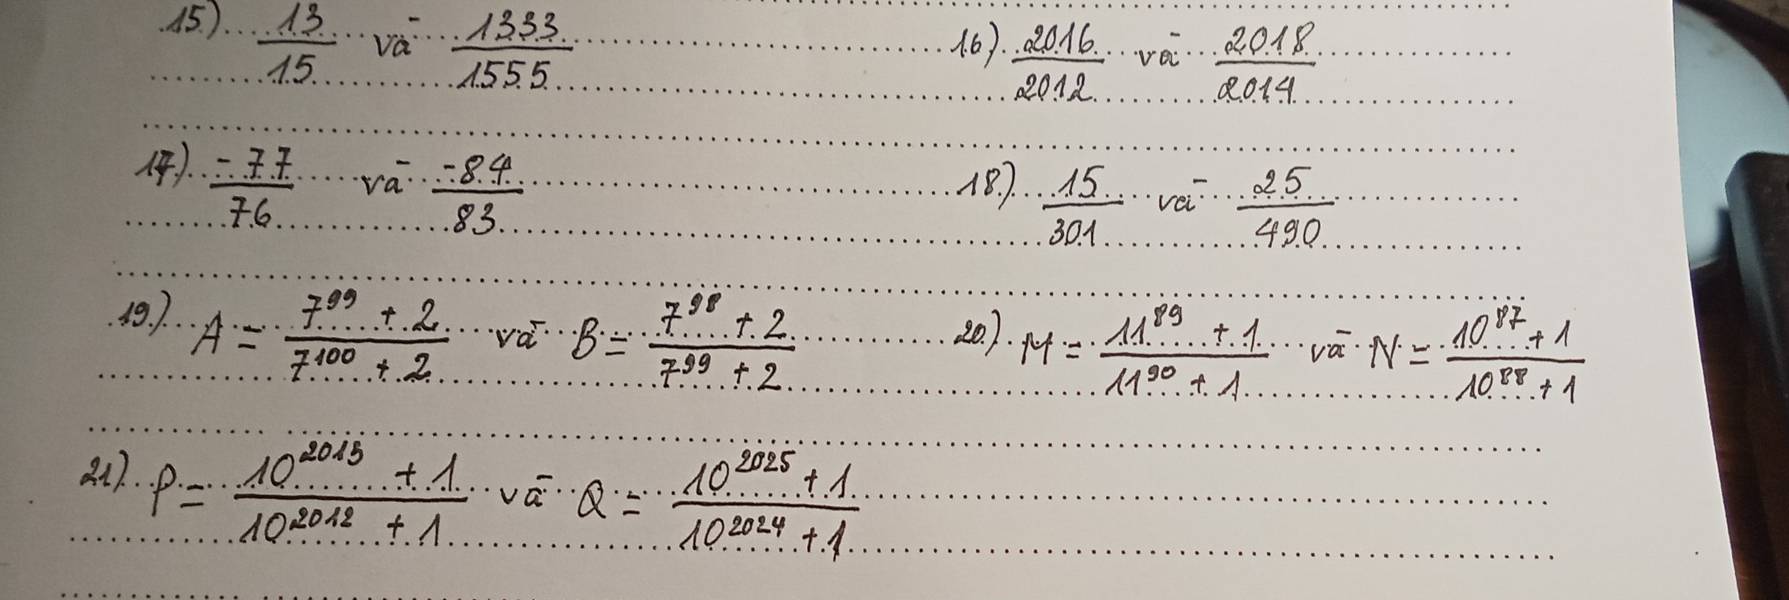 15) 13/15 và 1333/1555
16) 2016/2012 và 2018/2014
17) -77/76 và -84/83
18) 15/301 và 25/490
19) A = (7^99 + 2)/(7^100 + 2) và B = (7^98 + 2)/(7^99 + 2)
20) M = (11^89 + 1)/(11^90 + 1) và N = (10^87 + 1)/(10^88 + 1)
21) P = (10^2013 + 1)/(10^2012 + 1) và Q = (10^2025 + 1)/(10^2024 + 1)